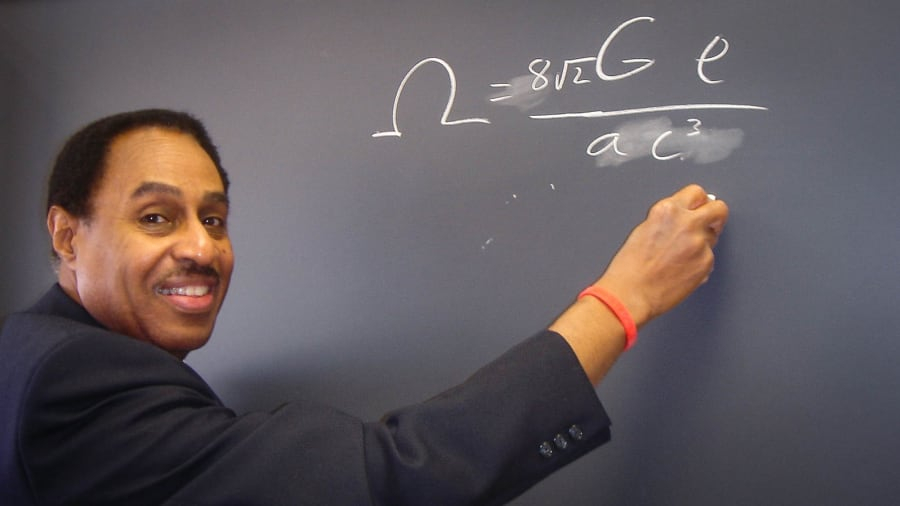 Ω = 8√2 G ρ
a c³